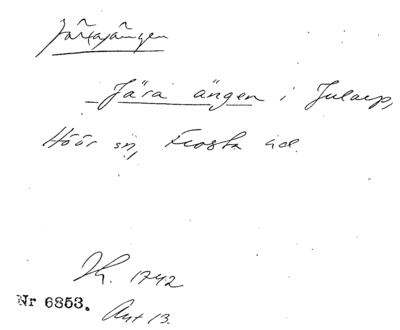 Järaängen
Jära ängen i Jularp,
Höör sn, Frosta hd.
Lh. 1742
Nr 6853.
Akt 13.